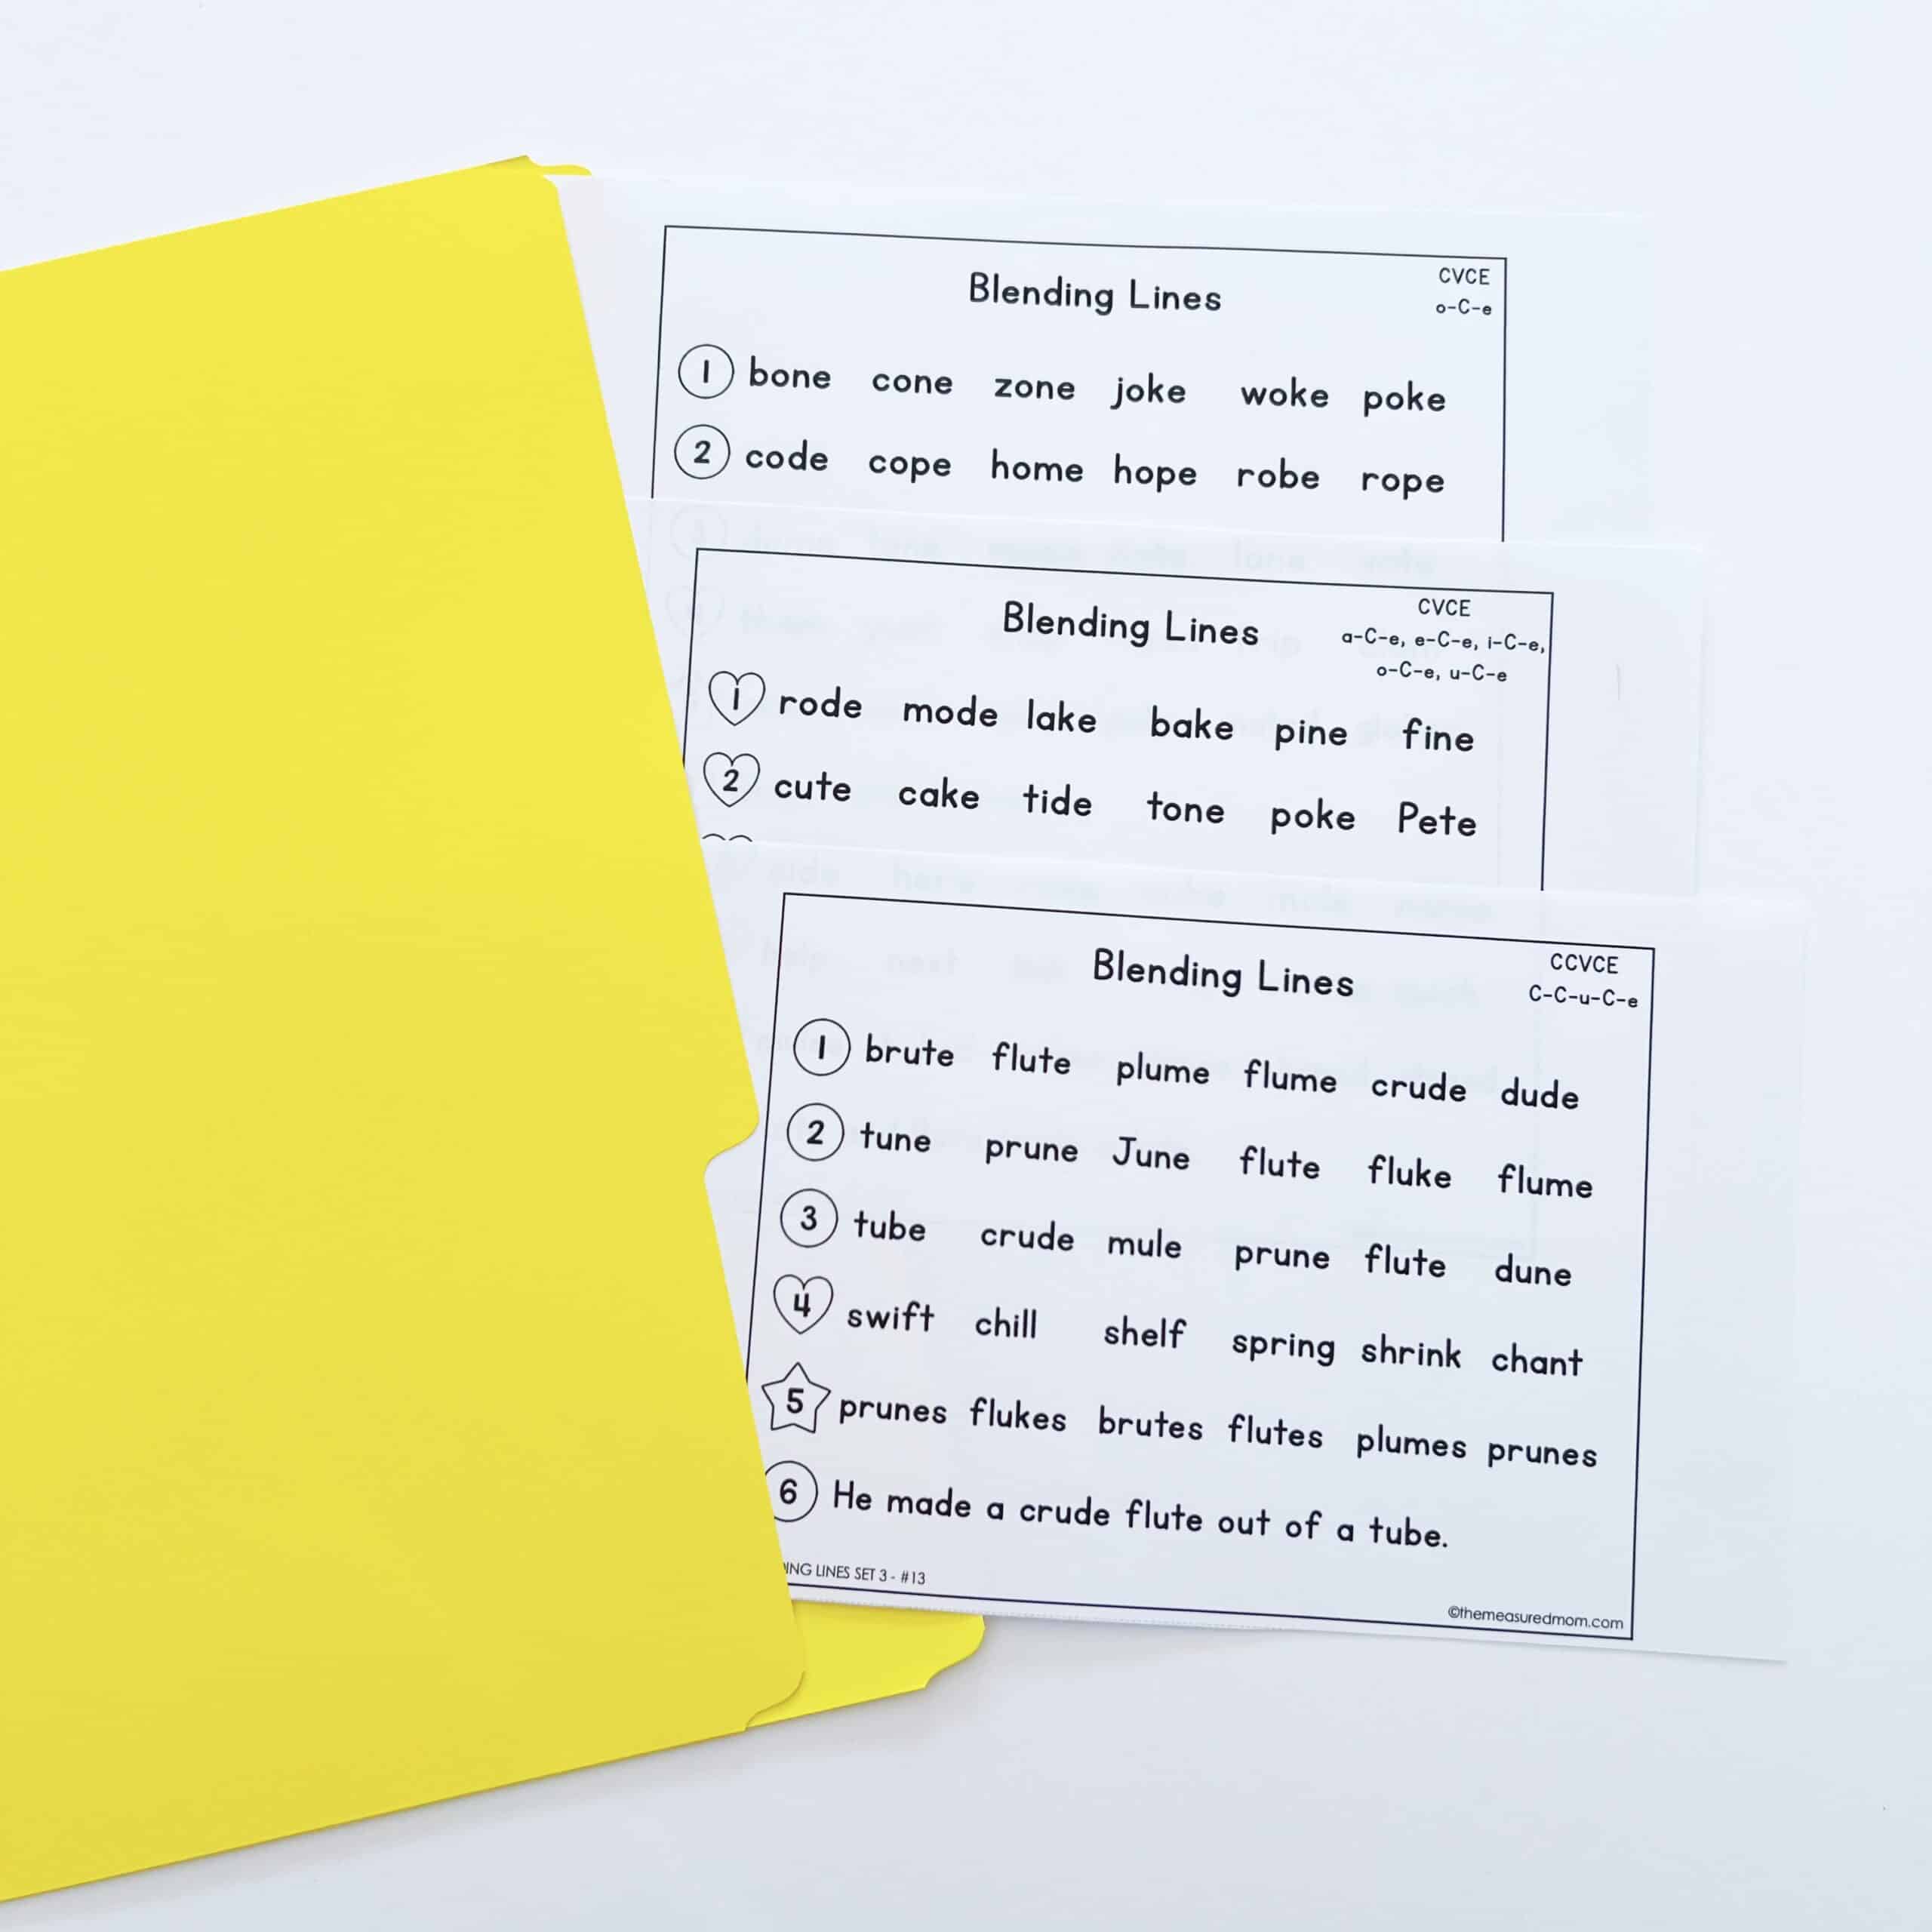 Blending Lines
CVCE
o-C-e
1 bone cone zone joke woke poke
2 code cope home hope robe rope
Blending Lines
CVCE
a-C-e, e-C-e, i-C-e,
o-C-e, u-C-e
1 rode mode lake bake pine fine
2 cute cake tide tone poke Pete
Blending Lines
CCVCE
C-C-u-C-e
1 brute flute plume flume crude dude
2 tune prune June flute fluke flume
3 tube crude mule prune flute dune
4 swift chill shelf spring shrink chant
5 prunes flukes brutes flutes plumes prunes
6 He made a crude flute out of a tube.
LINES SET 3 - #13
©themeasuredmom.com